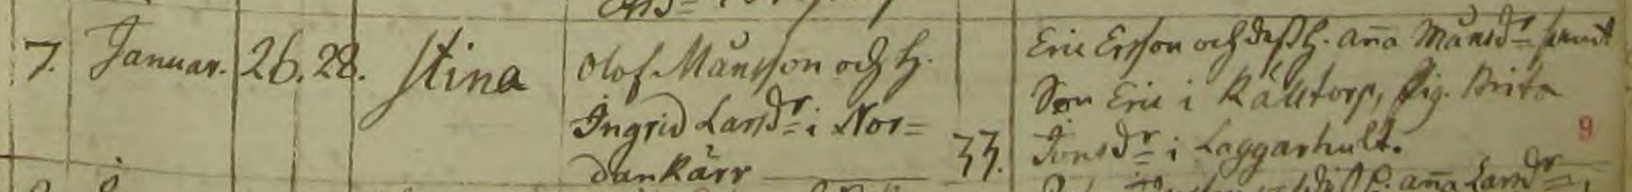 7. Januar. 26. 28. Stina
Olof Månsson och H.
Ingrid Larsdr i Nor=
dankärr 33.
Eric Ersson och dess H. Anna Månsdr samt
Son Eric i Råttorp, Pig. Brita
Jonsdr i Laggarhult.
9
Anna Larsdr